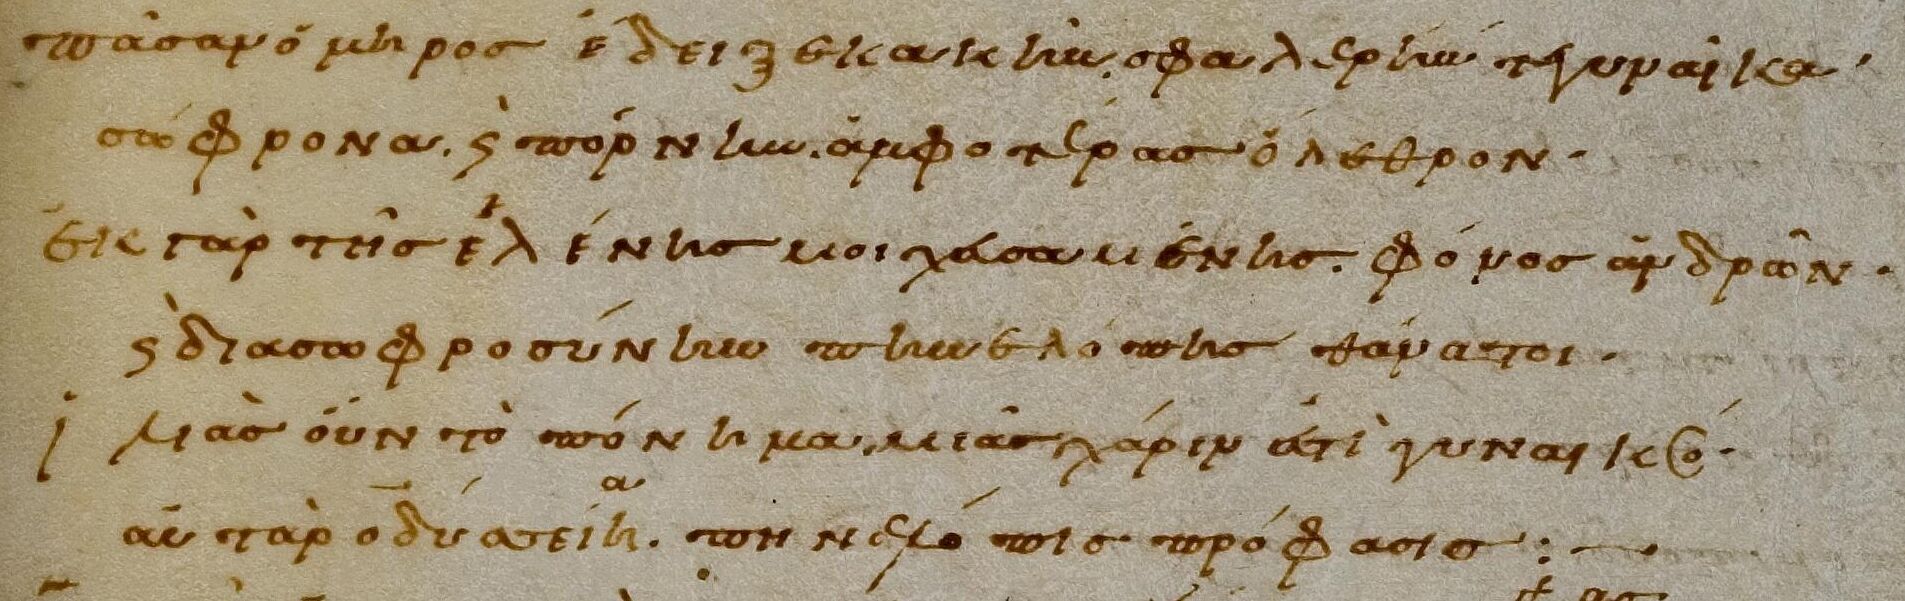 πᾶσαν ὅμηρος ἔδειξε κακὴν. σφαλερὴν τὲ γυναῖκα·
σώφρονα. ϛ πόρνην. ἀμφοτέρας ὄλεθρον·
ἐκ γὰρ τῆς ἑλένης μοιχησαμένης. φόνος ἀνδρῶν·
ϛ διὰ σωφροσύνην πηνελόπης θάνατοι·
ἰλιὰς οὖν τὸ πόνημα μιᾶς χάριν ἐστὶ γυναικός·
αὐτὰρ ὀδυσσείη. πηνελόπις πρόφασις :